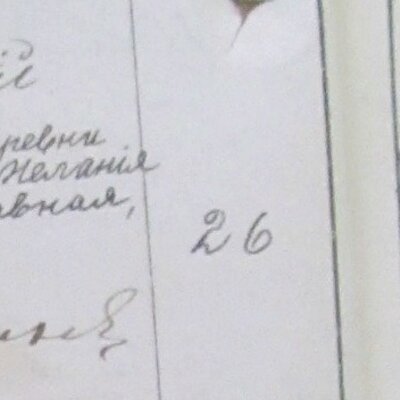 ревни
Желанія
вная,
26